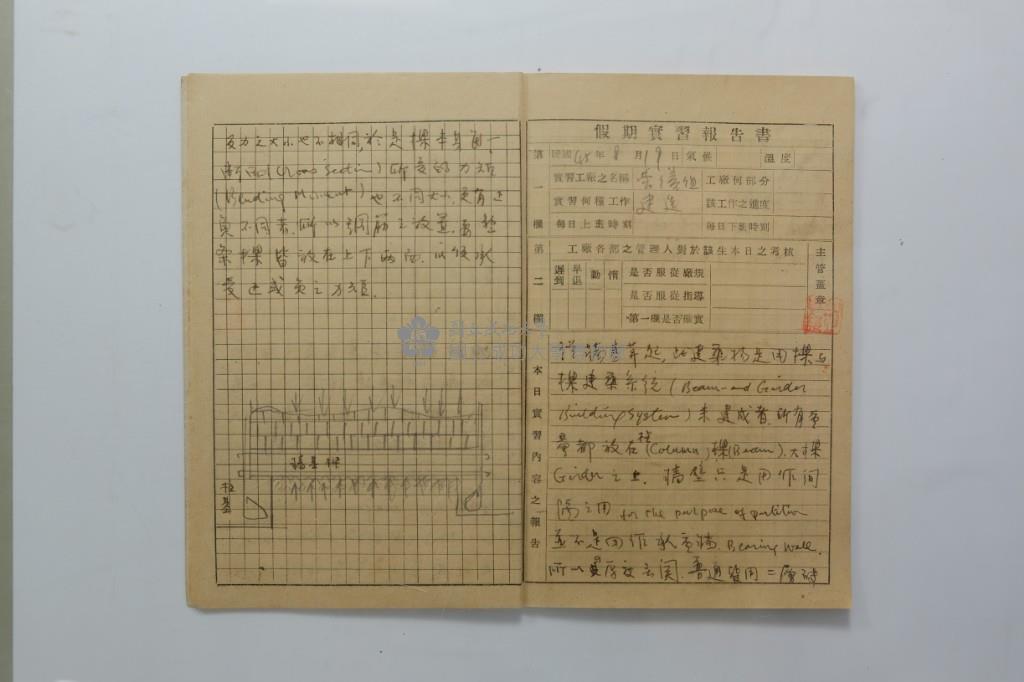 反力之大小也不相同，於是樑本身
斷面(Cross Section)所受的力矩
(Bending Moment)也不同大小，更有正
負不同者，所以鋼筋之放置，
樑皆放在上下兩面，以便承
受正或負之力矩。
牆基樑
柱基
假期實習報告書
第一欄
民國45年8月19日氣候 溫度
實習工廠之名稱 工廠何部分
實習何種工作 建造 該工作之進度
每日上班時刻 每日下班時刻
第二欄
工廠各部之管理人對於該生本日之考核
遲到 早退 勤 惰
是否服從廠規
是否服從指導
第一欄是否確實
主管蓋章
本日實習內容之報告
牆壁 此建築物是用樑與
樑建築系統(Beam-and Girder
Building System)來建成者，所有重
量都放在柱(Column)樑(Beam)、大樑
Girder之上，牆壁只是用作間
隔之用 for the purpose of partition
並不是用作承重牆 Bearing Wall,
所以 厚度 普通皆用二
國立成功大學